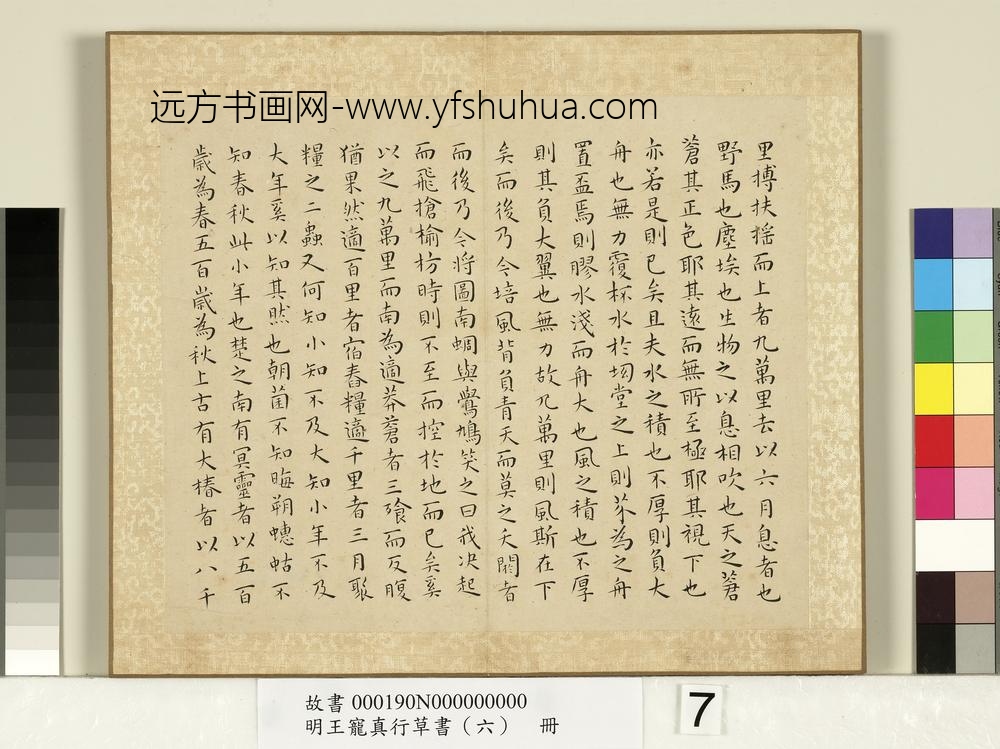 远方书画网-www.yfshuhua.com
里摶扶摇而上者九萬里去以六月息者也
野馬也塵埃也生物之以息相吹也天之蒼
蒼其正色耶其遠而無所至極耶其視下也
亦若是則已矣且夫水之積也不厚則負大
舟也無力覆杯水於坳堂之上則芥為之舟
置盃焉則膠水淺而舟大也風之積也不厚
則其負大翼也無力故九萬里則風斯在下
矣而後乃今培風背負青天而莫之夭閼者
而後乃今将圖南蜩與鷽鳩笑之曰我决起
而飛搶榆枋時則不至而控於地而已矣奚
以之九萬里而南為適莽蒼者三飱而反腹
猶果然適百里者宿舂糧適千里者三月聚
糧之二蟲又何知小知不及大知小年不及
大年奚以知其然也朝菌不知晦朔蟪蛄不
知春秋此小年也楚之南有冥靈者以五百
歲為春五百歲為秋上古有大椿者以八千
故書 000190N000000000
明王寵真行草書（六） 冊
7